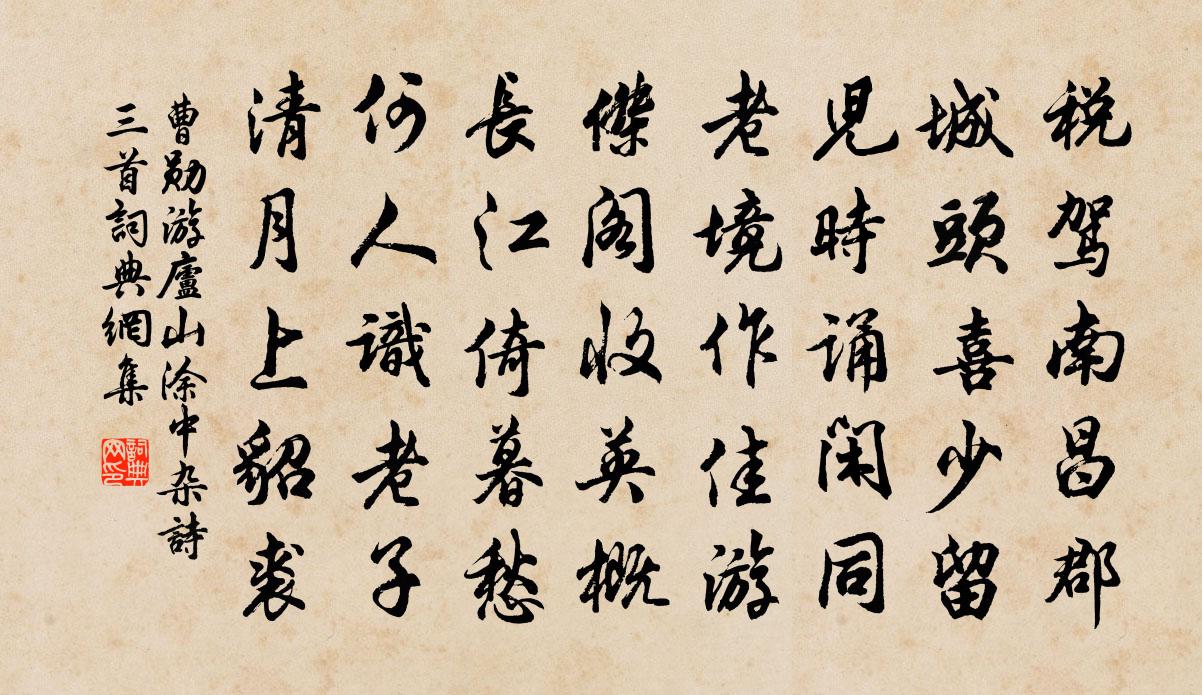 税駕南昌郡
城頭喜少留
児時誦閑同
老境作佳游
傑閣收英概
長江倚暮愁
何人識老子
清月上貂裘
曹勛游廬山涂中杂詩
三首詞典網集
詞典网印